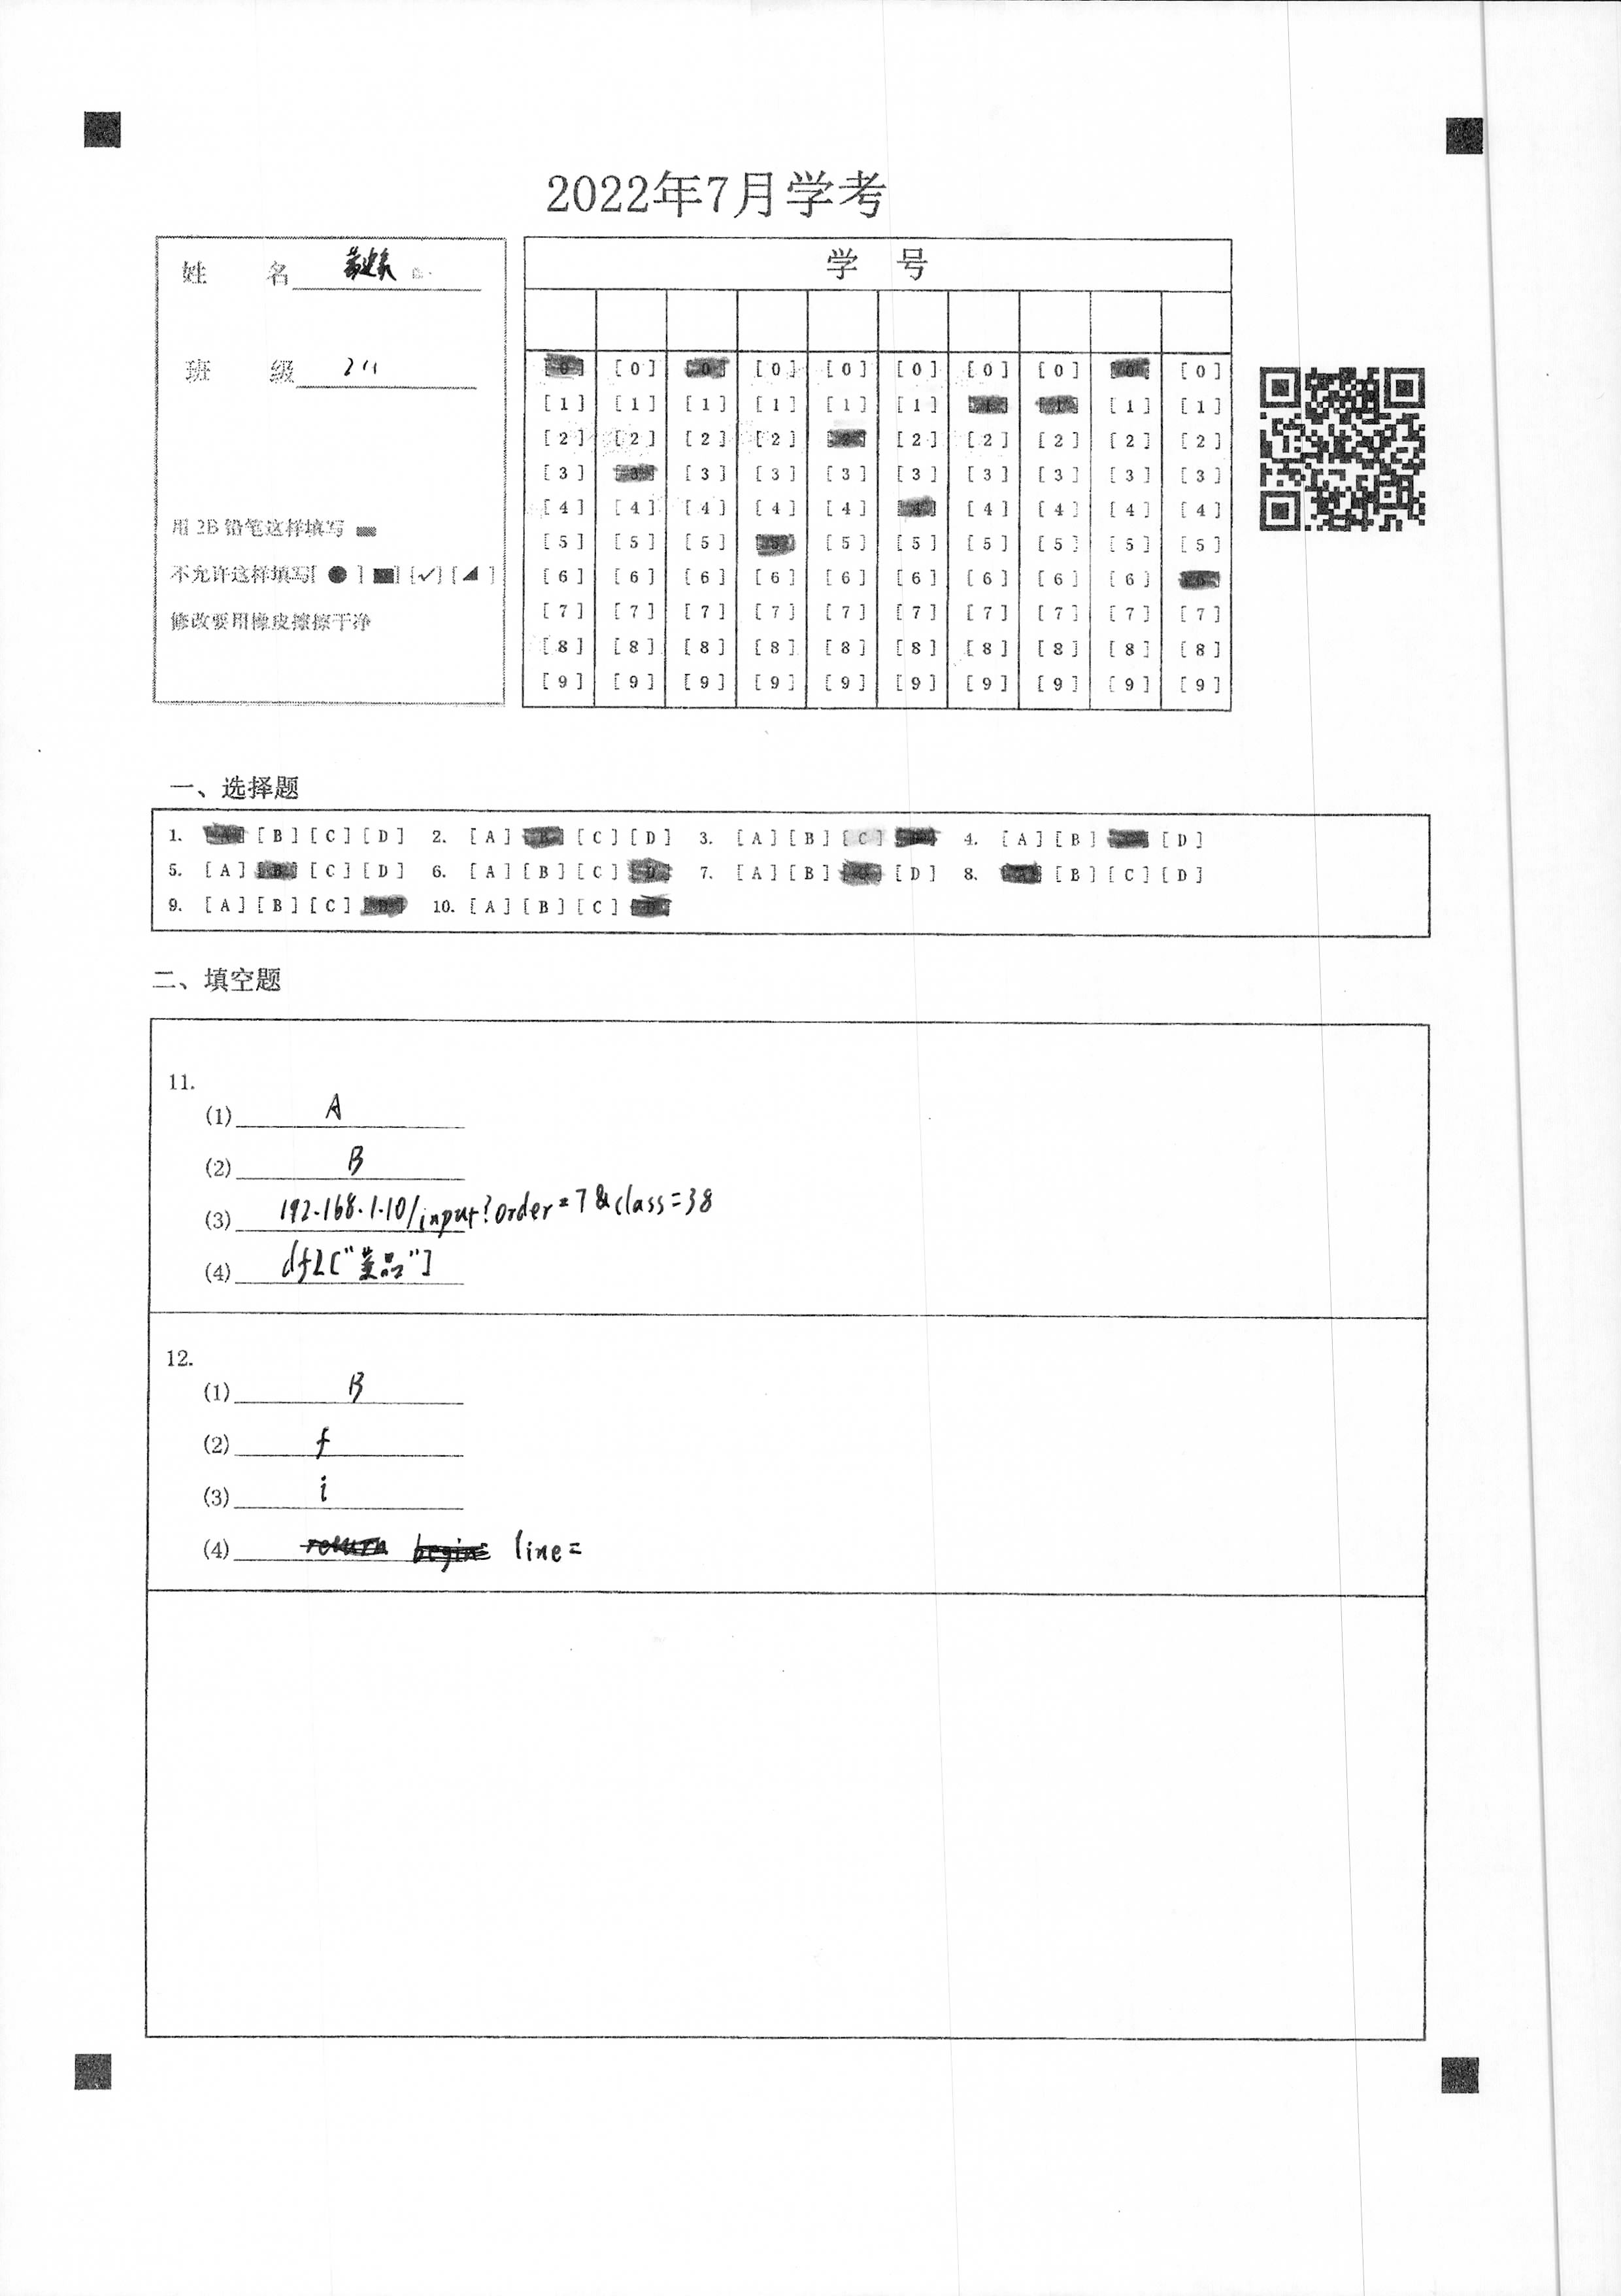 2022年7月学考
姓 名
班 级 211
用 2B 铅笔这样填写
不允许这样填写[ ● ] ■] [✓] [◢ ]
修改要用橡皮擦擦干净
学 号
[0] [0] [0] [0] [0] [0] [0] [0] [0] [0]
[1] [1] [1] [1] [1] [1] [1] [1] [1] [1]
[2] [2] [2] [2] [2] [2] [2] [2] [2] [2]
[3] [3] [3] [3] [3] [3] [3] [3] [3] [3]
[4] [4] [4] [4] [4] [4] [4] [4] [4] [4]
[5] [5] [5] [5] [5] [5] [5] [5] [5] [5]
[6] [6] [6] [6] [6] [6] [6] [6] [6] [6]
[7] [7] [7] [7] [7] [7] [7] [7] [7] [7]
[8] [8] [8] [8] [8] [8] [8] [8] [8] [8]
[9] [9] [9] [9] [9] [9] [9] [9] [9] [9]
一、选择题
1. [A] [B] [C] [D] 2. [A] [B] [C] [D] 3. [A] [B] [C] [D] 4. [A] [B] [C] [D]
5. [A] [B] [C] [D] 6. [A] [B] [C] [D] 7. [A] [B] [C] [D] 8. [A] [B] [C] [D]
9. [A] [B] [C] [D] 10. [A] [B] [C] [D]
二、填空题
11.
(1) A
(2) B
(3) 192.168.1.10/input?order=7&class=38
(4) df2["菜品"]
12.
(1) B
(2) f
(3) i
(4) return begin= line=